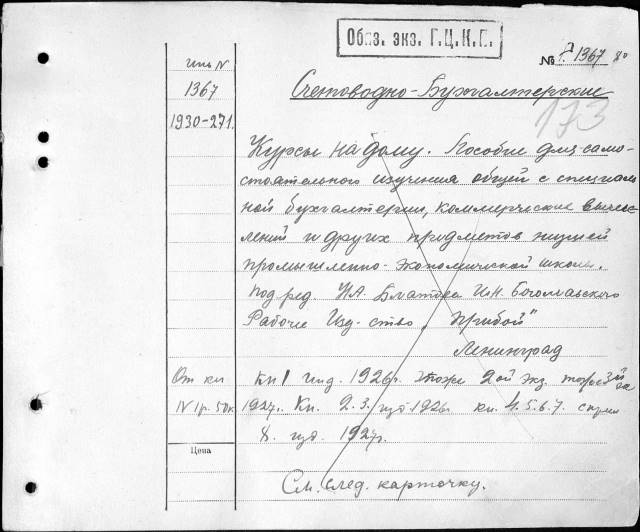 Обяз. экз. Г.Ц.К.П.
№ 1367 8°
инв N
1367
1930-271.
Счетоводно-Бухгалтерские
173
Курсы на дому. Пособие для само-
стоятельного изучения общей с специаль
ной бухгалтерии, коммерческие вычис
лений и других предметов низшей
промышленно-экономической школы.
Под ред. Н.А. Блатова И.Н. Богомавского
Рабочие Изд-ство „Прибой"
Ленинград
От кн
N 1 р. 50к
Кн 1 изд. 1926г. тоже 2ой экз. тоже 3й
1927г. Кн. 2.3. изд 1926 кн. 4.5.6.7.
8. изд. 1927г.
Цена
См. след. карточку.